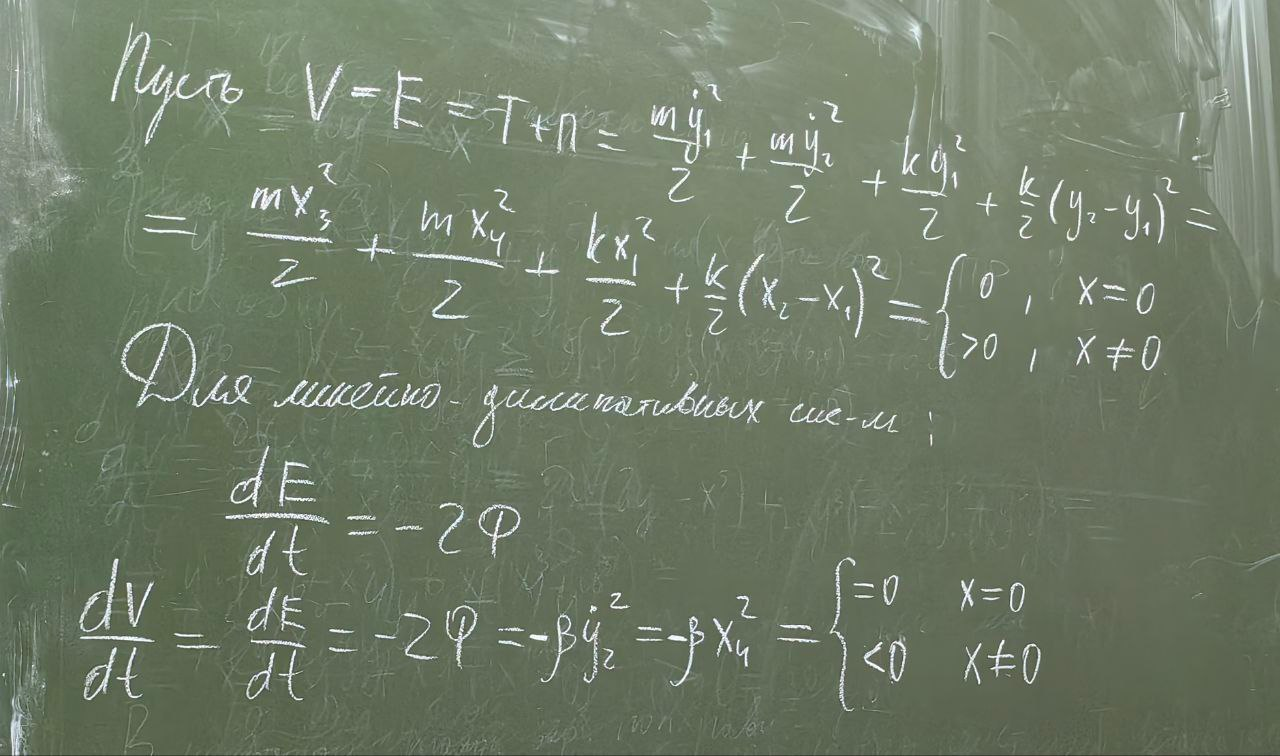 Пусть V = E = T + П = mẏ₁²/2 + mẏ₂²/2 + ky₁²/2 + k/2 (y₂ - y₁)² =
= mx₃²/2 + mx₄²/2 + kx₁²/2 + k/2 (x₂ - x₁)² = { 0 , x = 0
>0 , x ≠ 0
Для линейно-диссипативных сис-м:
dE/dt = -2Φ
dV/dt = dE/dt = -2Φ = -βẏ₂² = -βx₄² = { =0 x=0
<0 x≠0